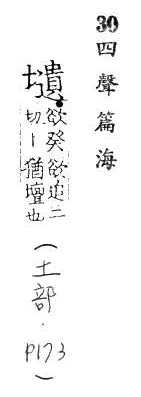 30四聲篇海
壝欲癸欲追二
切丨猶壇也
(土部.P173)